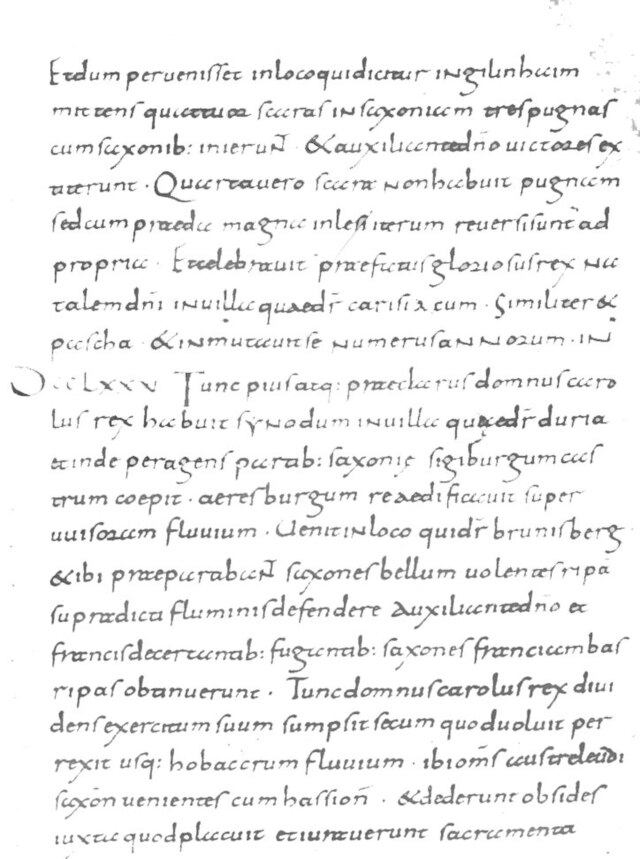 Et dum pervenisset in loco qui dicitur ingilinhaim
mittens quattuor scaras in saxoniam tres pugnas
cum saxonib: inierun̄ · & auxiliante dn̄o victores ex
titerunt · Quarta vero scara non habuit pugnam
sed cum praeda magna inlesi iterum reversi sunt ad
propria · Et celebravit praefatus gloriosus rex na
talem dn̄i in villa quae dr̄ carisiacum · Similiter &
pascha · & inmutavit se numerus annorum · in
DCCLXXV Tunc pius atq: praeclarus domnus caro
lus rex habuit synodum in villa quae dr̄ duria
et inde peragens partib: saxonię sigiburgum cas
trum coepit · aeresburgum reaedificavit super
uuisoram fluvium · Venit in loco qui dr̄ brunisberg
& ibi praeparaban̄ saxones bellum volentes ripā
supradicti fluminis defendere Auxiliante dn̄o et
francis decertantib: fugientib: saxones franci ambas
ripas obtinuerunt · Tunc domnus carolus rex divi
dens exercitum suum sumpsit secum quod voluit per
rexit usq: hobaccrum fluvium · ibi om̄s austreleudi
saxon̄ venientes cum hassion̄ · & dederunt obsides
iuxta quod placuit et iuraverunt sacramenta